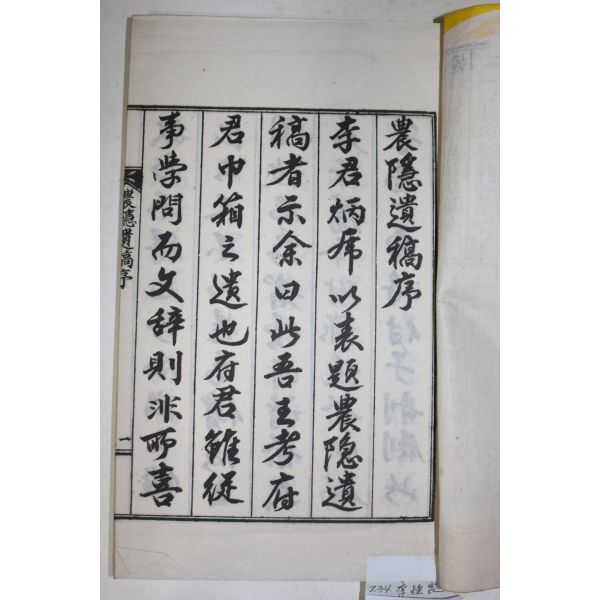 農隱遺稿序
李君炳席以表題農隱遺
稿者示余曰此吾王考府
君巾箱之遺也府君雖從
事學問而文辞則非所喜
農隱遺稿序
一
234 李